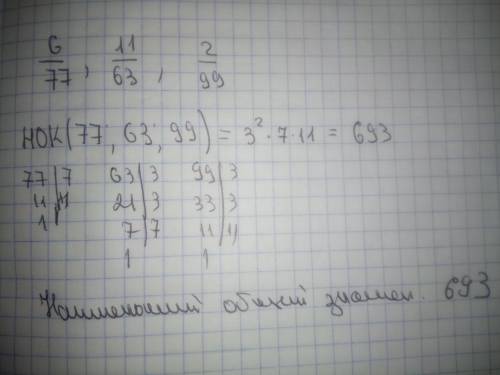 6/77, 11/63, 2/99
НОК(77; 63; 99) = 3²·7·11 = 693
77|7 63|3 99|3
11|11 21|3 33|3
1 7|7 11|11
1 1
Наименьший общий знамен. 693